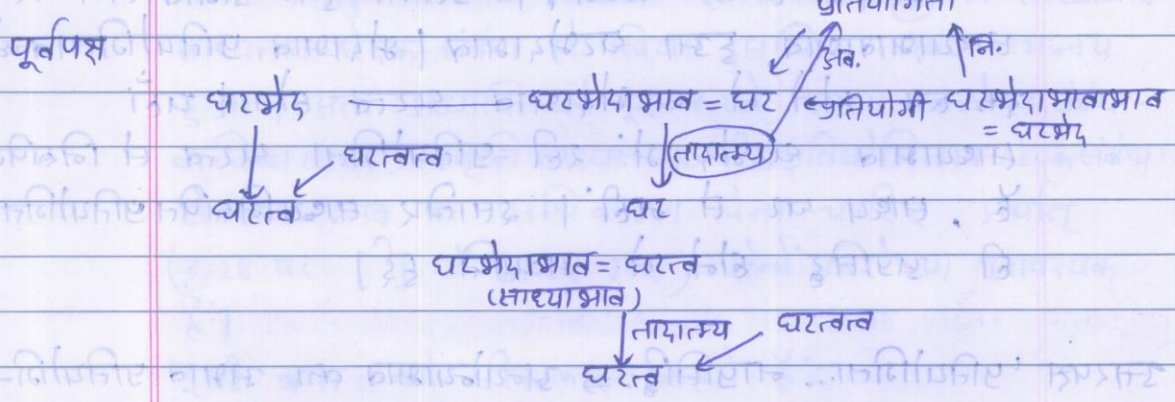 प्रतियोगिता
पूर्वपक्ष
अव. नि.
घटभेद घटभेदाभाव = घट प्रतियोगी घटभेदाभावाभाव
= घटभेद
घटत्वत्व तादात्म्य
घटत्व घट
घटभेदाभाव = घटत्व
(साध्याभाव)
तादात्म्य घटत्वत्व
घटत्व